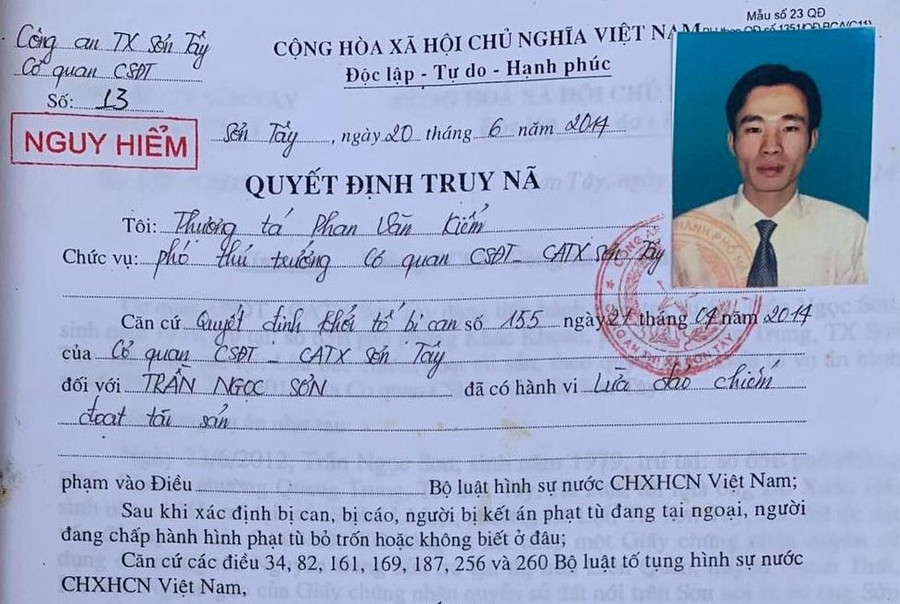 Mẫu số 23 QĐ
Công an TX Sơn Tây
CỘNG HÒA XÃ HỘI CHỦ NGHĨA VIỆT NAM
Cơ quan CSĐT
Độc lập - Tự do - Hạnh phúc
Số: 13
NGUY HIỂM
Sơn Tây, ngày 20 tháng 6 năm 2014
QUYẾT ĐỊNH TRUY NÃ
Tôi: Thượng tá Phan Văn Kiểm
Chức vụ: phó thủ trưởng Cơ quan CSĐT - CATX Sơn Tây
Căn cứ Quyết định khởi tố bị can số 155 ngày 21 tháng 04 năm 2014
của Cơ quan CSĐT CATX Sơn Tây
đối với TRẦN NGỌC SƠN đã có hành vi Lừa đảo chiếm
đoạt tài sản
phạm vào Điều Bộ luật hình sự nước CHXHCN Việt Nam;
Sau khi xác định bị can, bị cáo, người bị kết án phạt tù đang tại ngoại, người
đang chấp hành hình phạt tù bỏ trốn hoặc không biết ở đâu;
Căn cứ các điều 34, 82, 161, 169, 187, 256 và 260 Bộ luật tố tụng hình sự nước
CHXHCN Việt Nam,